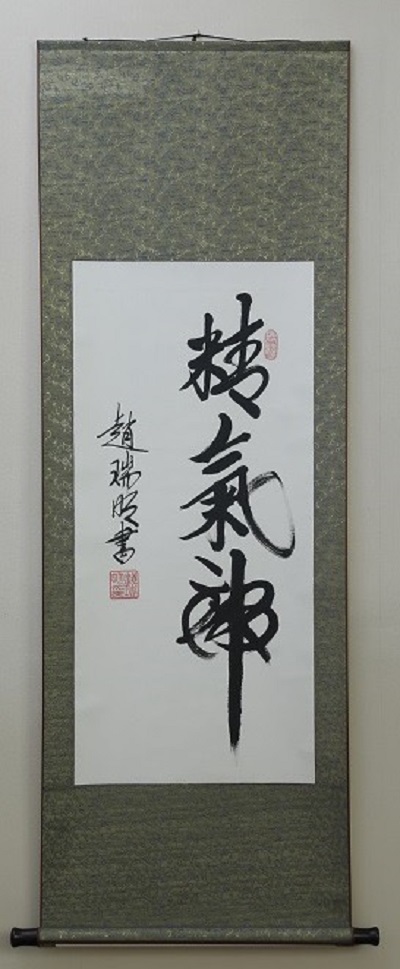 精氣神
趙瑞明書